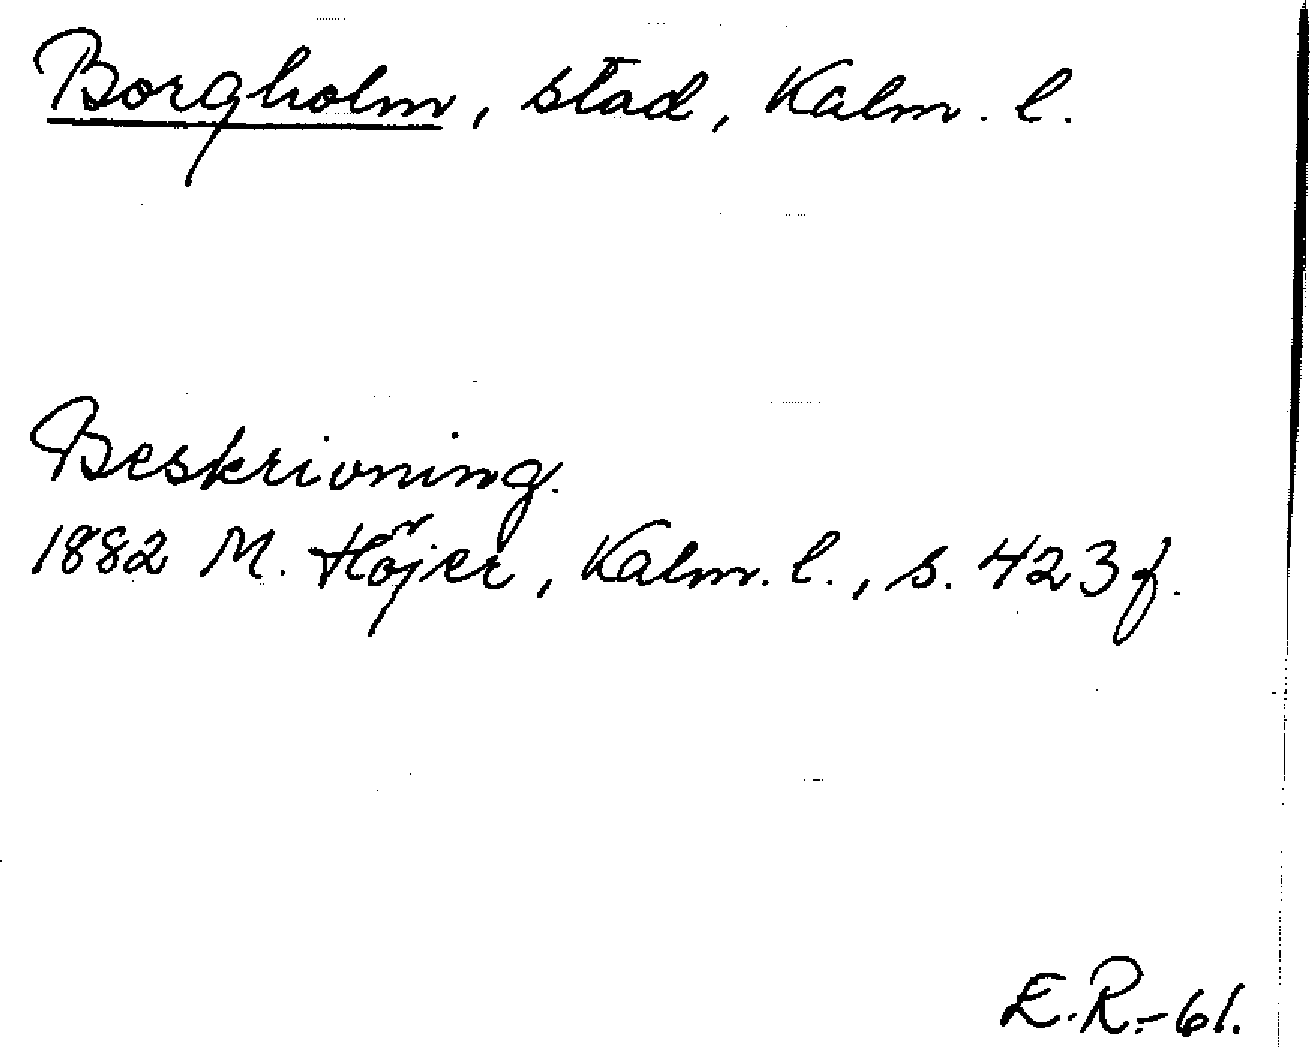 Borgholm, stad, Kalm. l.
Beskrivning.
1882 M. Höjer, Kalm. l., s. 423 f.
E.R.-61.